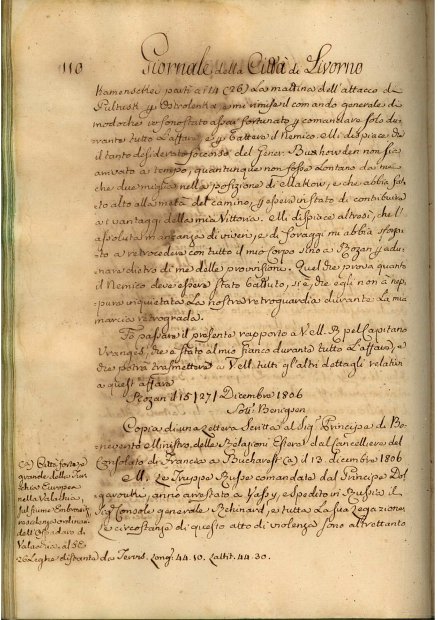 110 Giornale della Città di Livorno
Kamenschei parti a i 14 (26) La mattina dell'attacco di
Pultusk, y Ostrolenka, e mi rimise il comando generale di
modoche io sono stato assai fortunato y comandare solo du
rante tutto L'affare, e y battere il nemico. Mi dispiace che
il tanto desiderato soccorso del Gener. Buxhowden non sia
arrivato a tempo, quantunque non fosse Lontano da me
che due miglia nella posizione di Makow, e che abbia fat
to alto alla metà del camino, y essere in stato di contribuire
a i vantaggi della mia Vittoria. Mi dispiace altresì, che l'
assoluta mancanza di viveri, e di foraggi mi abbia forza
to a retrocedere con tutto il mio corpo sino a Rozan y adu
nare dietro di me delle provvisioni. Quel che prova quanto
il Nemico deve essere stato battuto, si è, che egli non à nep
pure inquietata La nostra retroguardia durante La mia
marcia retrograda.
Fo passare il presente rapporto a Vell. R. pel Capitano
Vranges, che è stato al mio fianco durante tutto L'affare, e
che potrà trasmettere a Vell. tutti gl'altri dettagli relativi
a quest'affare
Rozan il 15 (27) Dicembre 1806
Sott. Benigson
Copia di una Lettera Scritta al Sig. Principe di Be
nevento Ministro delle Relazioni Esteri dal Cancelliere del
Consolato di Francia a Bucharest (a) il 13. dicembre 1806
M. Le Truppe Russe comandate dal Principe Dol
garouki, anno arrestato a Yassy, e spedito in Russia il
Sig. Console generale Reinard, e tutta La sua Legazione
Le circostanze di questo atto di violenza sono altrettanto
(a) Città forte e
grande della Tur
chia Europea
nella Valachia,
sul fiume
Valachia. al SE
26 Leghe distante da Tervis. Long. 44.10. Latit. 44.30.